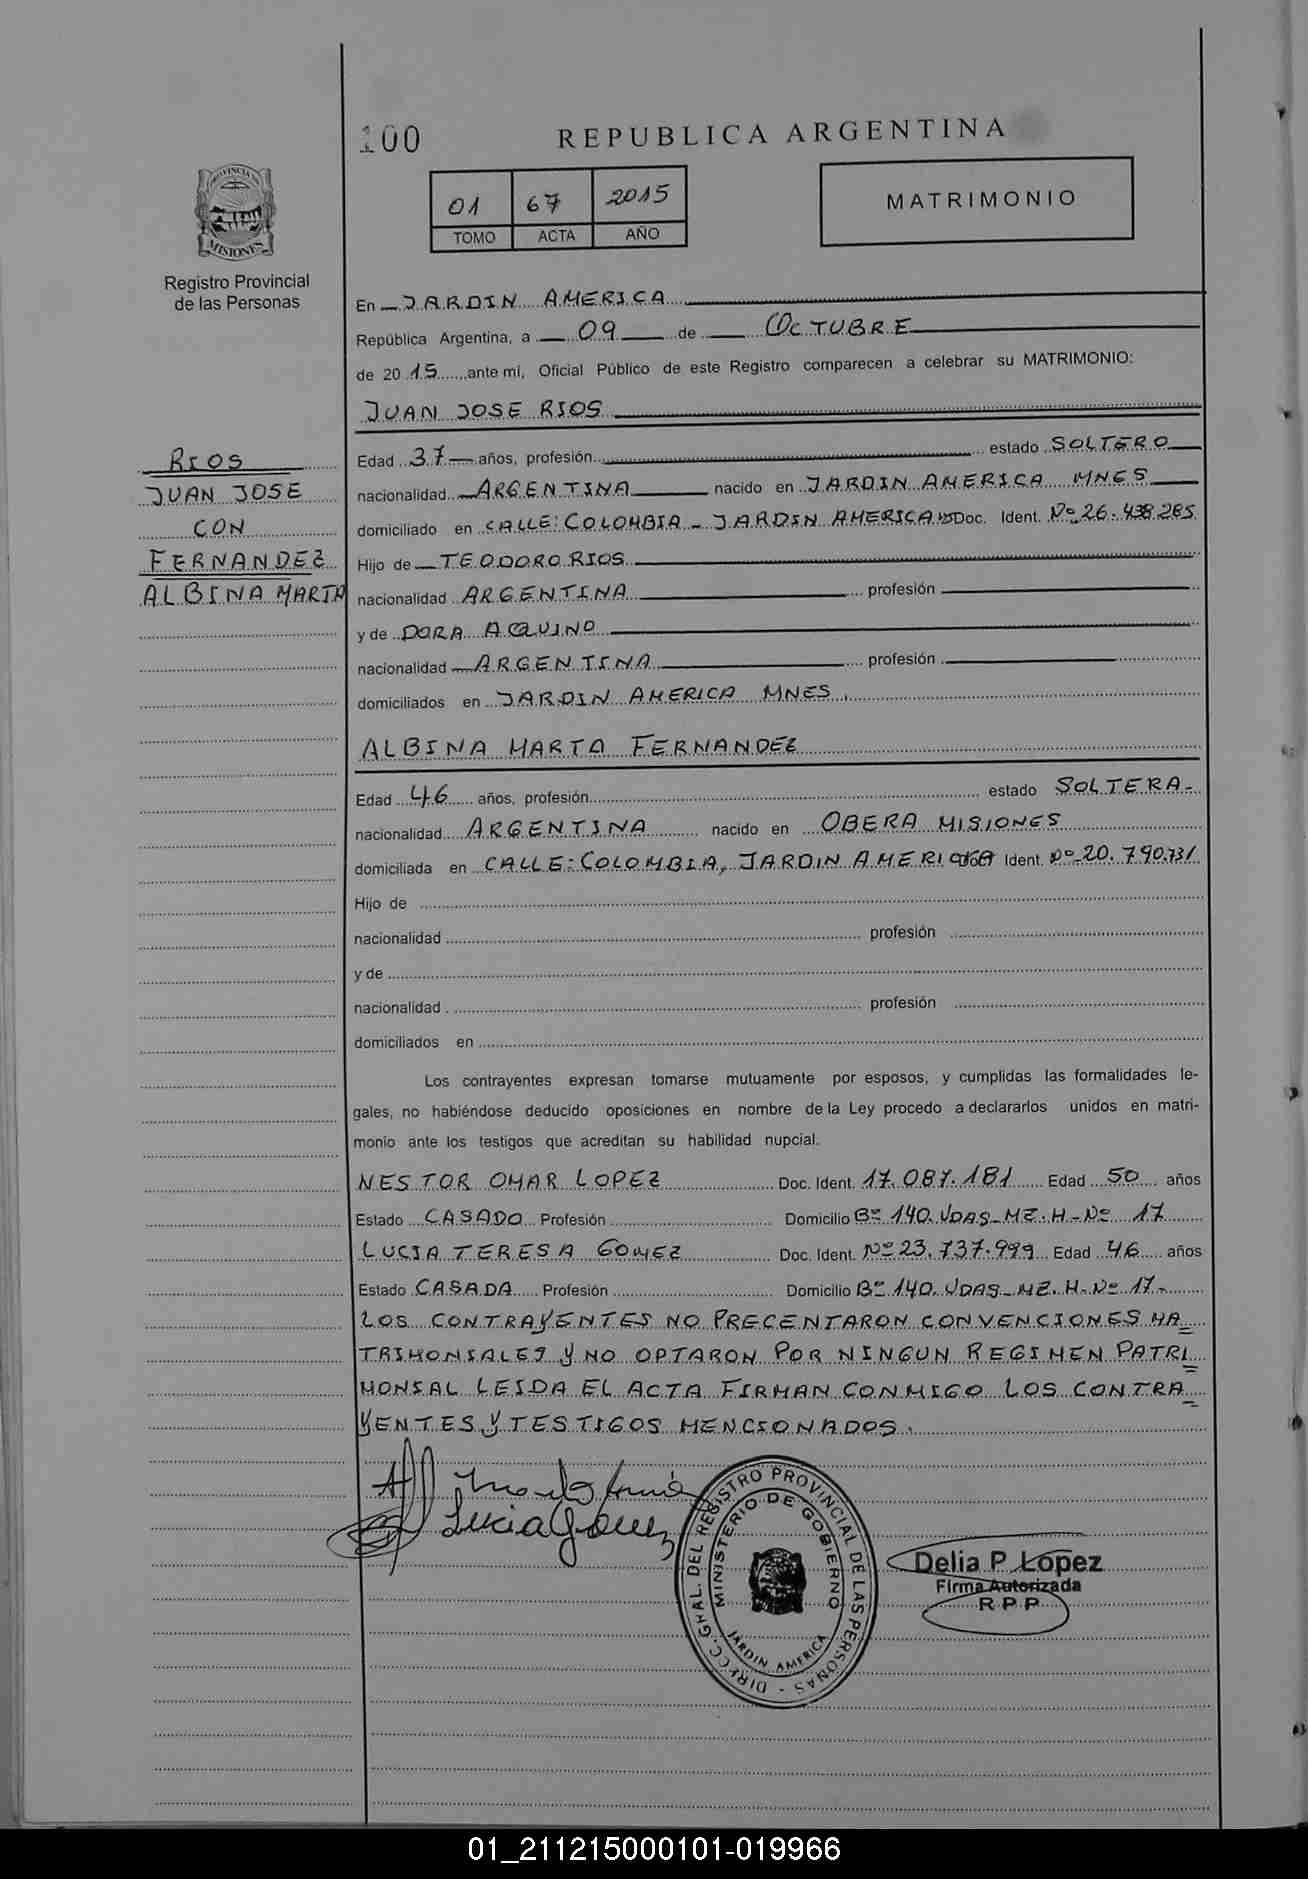 100
REPUBLICA ARGENTINA
01 67 2015
TOMO ACTA AÑO
MATRIMONIO
PROVINCIA DE
MISIONES
Registro Provincial
de las Personas
RIOS
JUAN JOSE
CON
FERNANDEZ
ALBINA MARTA
En JARDIN AMERICA
República Argentina, a 09 de OCTUBRE
de 2015 ante mí, Oficial Público de este Registro comparecen a celebrar su MATRIMONIO:
JUAN JOSE RIOS
Edad 37 años, profesión estado SOLTERO
nacionalidad ARGENTINA nacido en JARDIN AMERICA MNES
domiciliado en CALLE: COLOMBIA - JARDIN AMERICA Doc. Ident. Nº 26.438.285
Hijo de TEODORO RIOS
nacionalidad ARGENTINA profesión
y de DORA AQUINO
nacionalidad ARGENTINA profesión
domiciliados en JARDIN AMERICA MNES.
ALBINA MARTA FERNANDEZ
Edad 46 años, profesión estado SOLTERA-
nacionalidad ARGENTINA nacido en OBERA MISIONES
domiciliada en CALLE: COLOMBIA, JARDIN AMERICA Ident. Nº 20.790.731
Hijo de
nacionalidad profesión
y de
nacionalidad profesión
domiciliados en
Los contrayentes expresan tomarse mutuamente por esposos, y cumplidas las formalidades le-
gales, no habiéndose deducido oposiciones en nombre de la Ley procedo a declararlos unidos en matri-
monio ante los testigos que acreditan su habilidad nupcial.
NESTOR OMAR LOPEZ Doc. Ident. 17.087.181 Edad 50 años
Estado CASADO Profesión Domicilio Bº 140.VDAS-MZ.H-Nº 17
LUCIA TERESA GOMEZ Doc. Ident. Nº 23.737.999 Edad 46 años
Estado CASADA Profesión Domicilio Bº 140.VDAS-MZ.H-Nº 17-
LOS CONTRAYENTES NO PRECENTARON CONVENCIONES MA=
TRIMONIALES Y NO OPTARON POR NINGUN REGIMEN PATRI=
MONIAL LEIDA EL ACTA FIRMAN CONMIGO LOS CONTRA=
YENTES Y TESTIGOS MENCIONADOS.
Lucia Gomez
DIRECC. GRAL. DEL REGISTRO PROVINCIAL DE LAS PERSONAS -
MINISTERIO DE GOBIERNO
JARDIN AMERICA
Delia P. Lopez
Firma Autorizada
R P P
01_211215000101-019966